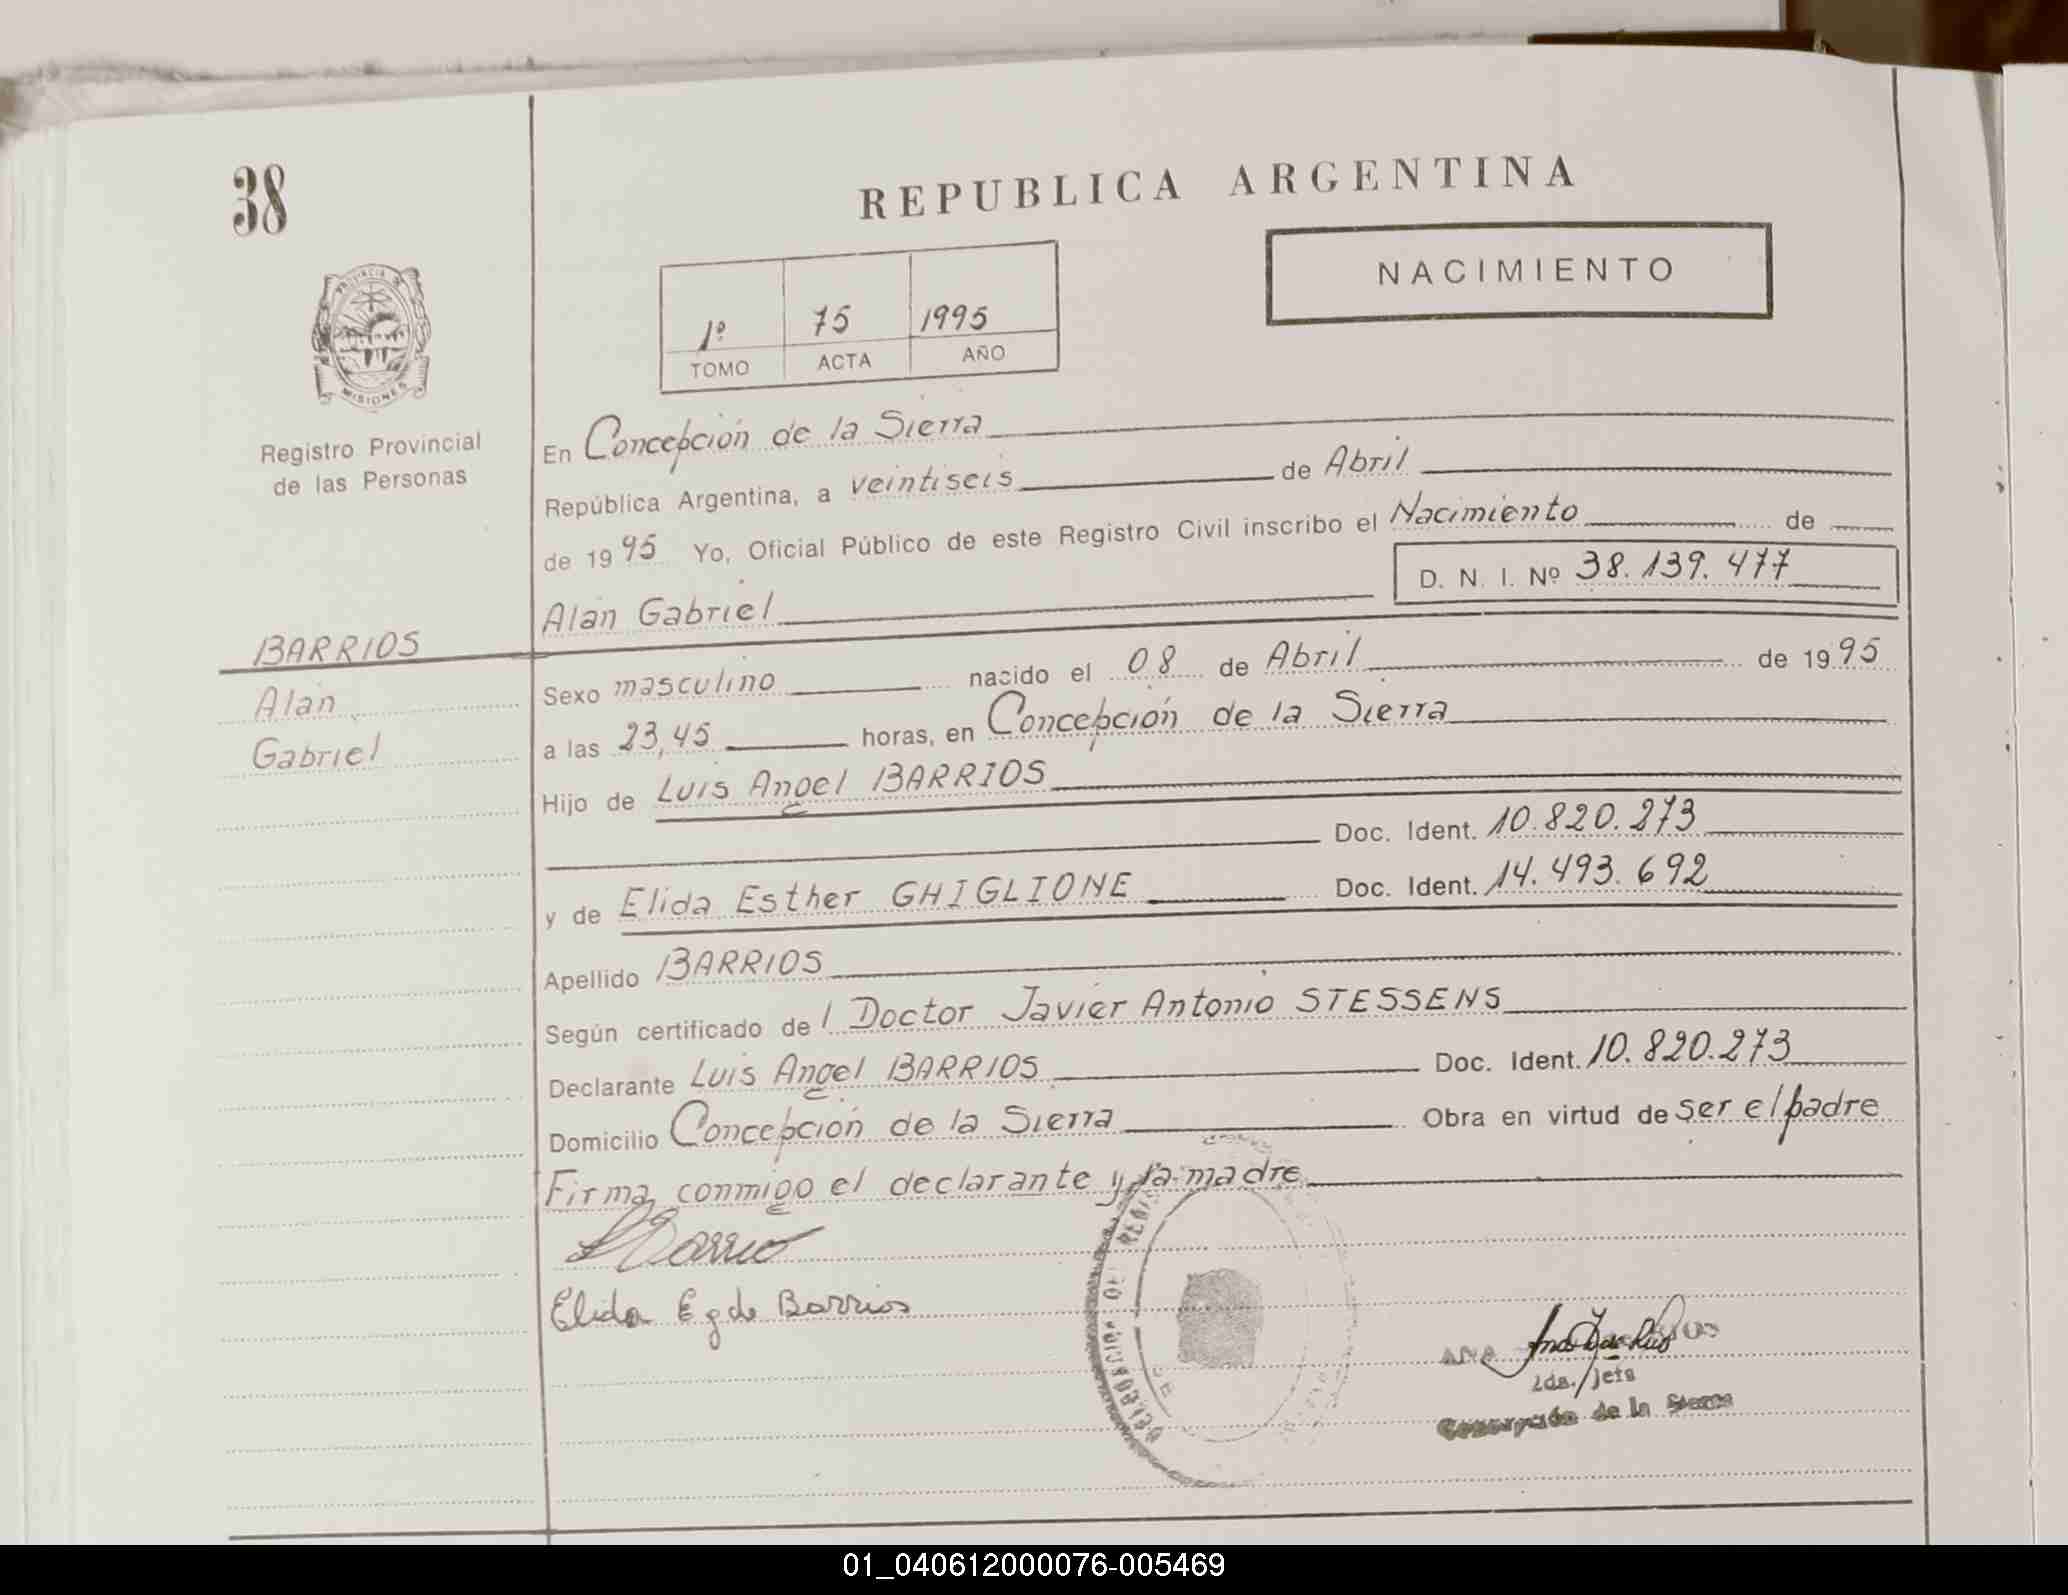 38
REPUBLICA ARGENTINA
NACIMIENTO
1º 75 1995
TOMO ACTA AÑO
PROVINCIA DE
MISIONES
Registro Provincial
de las Personas
En Concepción de la Sierra
República Argentina, a veintiseis de Abril
de 1995 Yo, Oficial Público de este Registro Civil inscribo el Nacimiento de
D. N. I. Nº 38.139.477
Alan Gabriel
BARRIOS
Alan
Gabriel
Sexo masculino nacido el 08 de Abril de 1995
a las 23,45 horas, en Concepción de la Sierra
Hijo de Luis Angel BARRIOS
Doc. Ident. 10.820.273
y de Elida Esther GHIGLIONE Doc. Ident. 14.493.692
Apellido BARRIOS
Según certificado del Doctor Javier Antonio STESSENS
Declarante Luis Angel BARRIOS Doc. Ident. 10.820.273
Domicilio Concepción de la Sierra Obra en virtud de ser el padre
Firma conmigo el declarante y la madre
Barrio
Elida E g de Barrios
ANA
2da. Jefa
Concepción de la Sierra
01_040612000076-005469